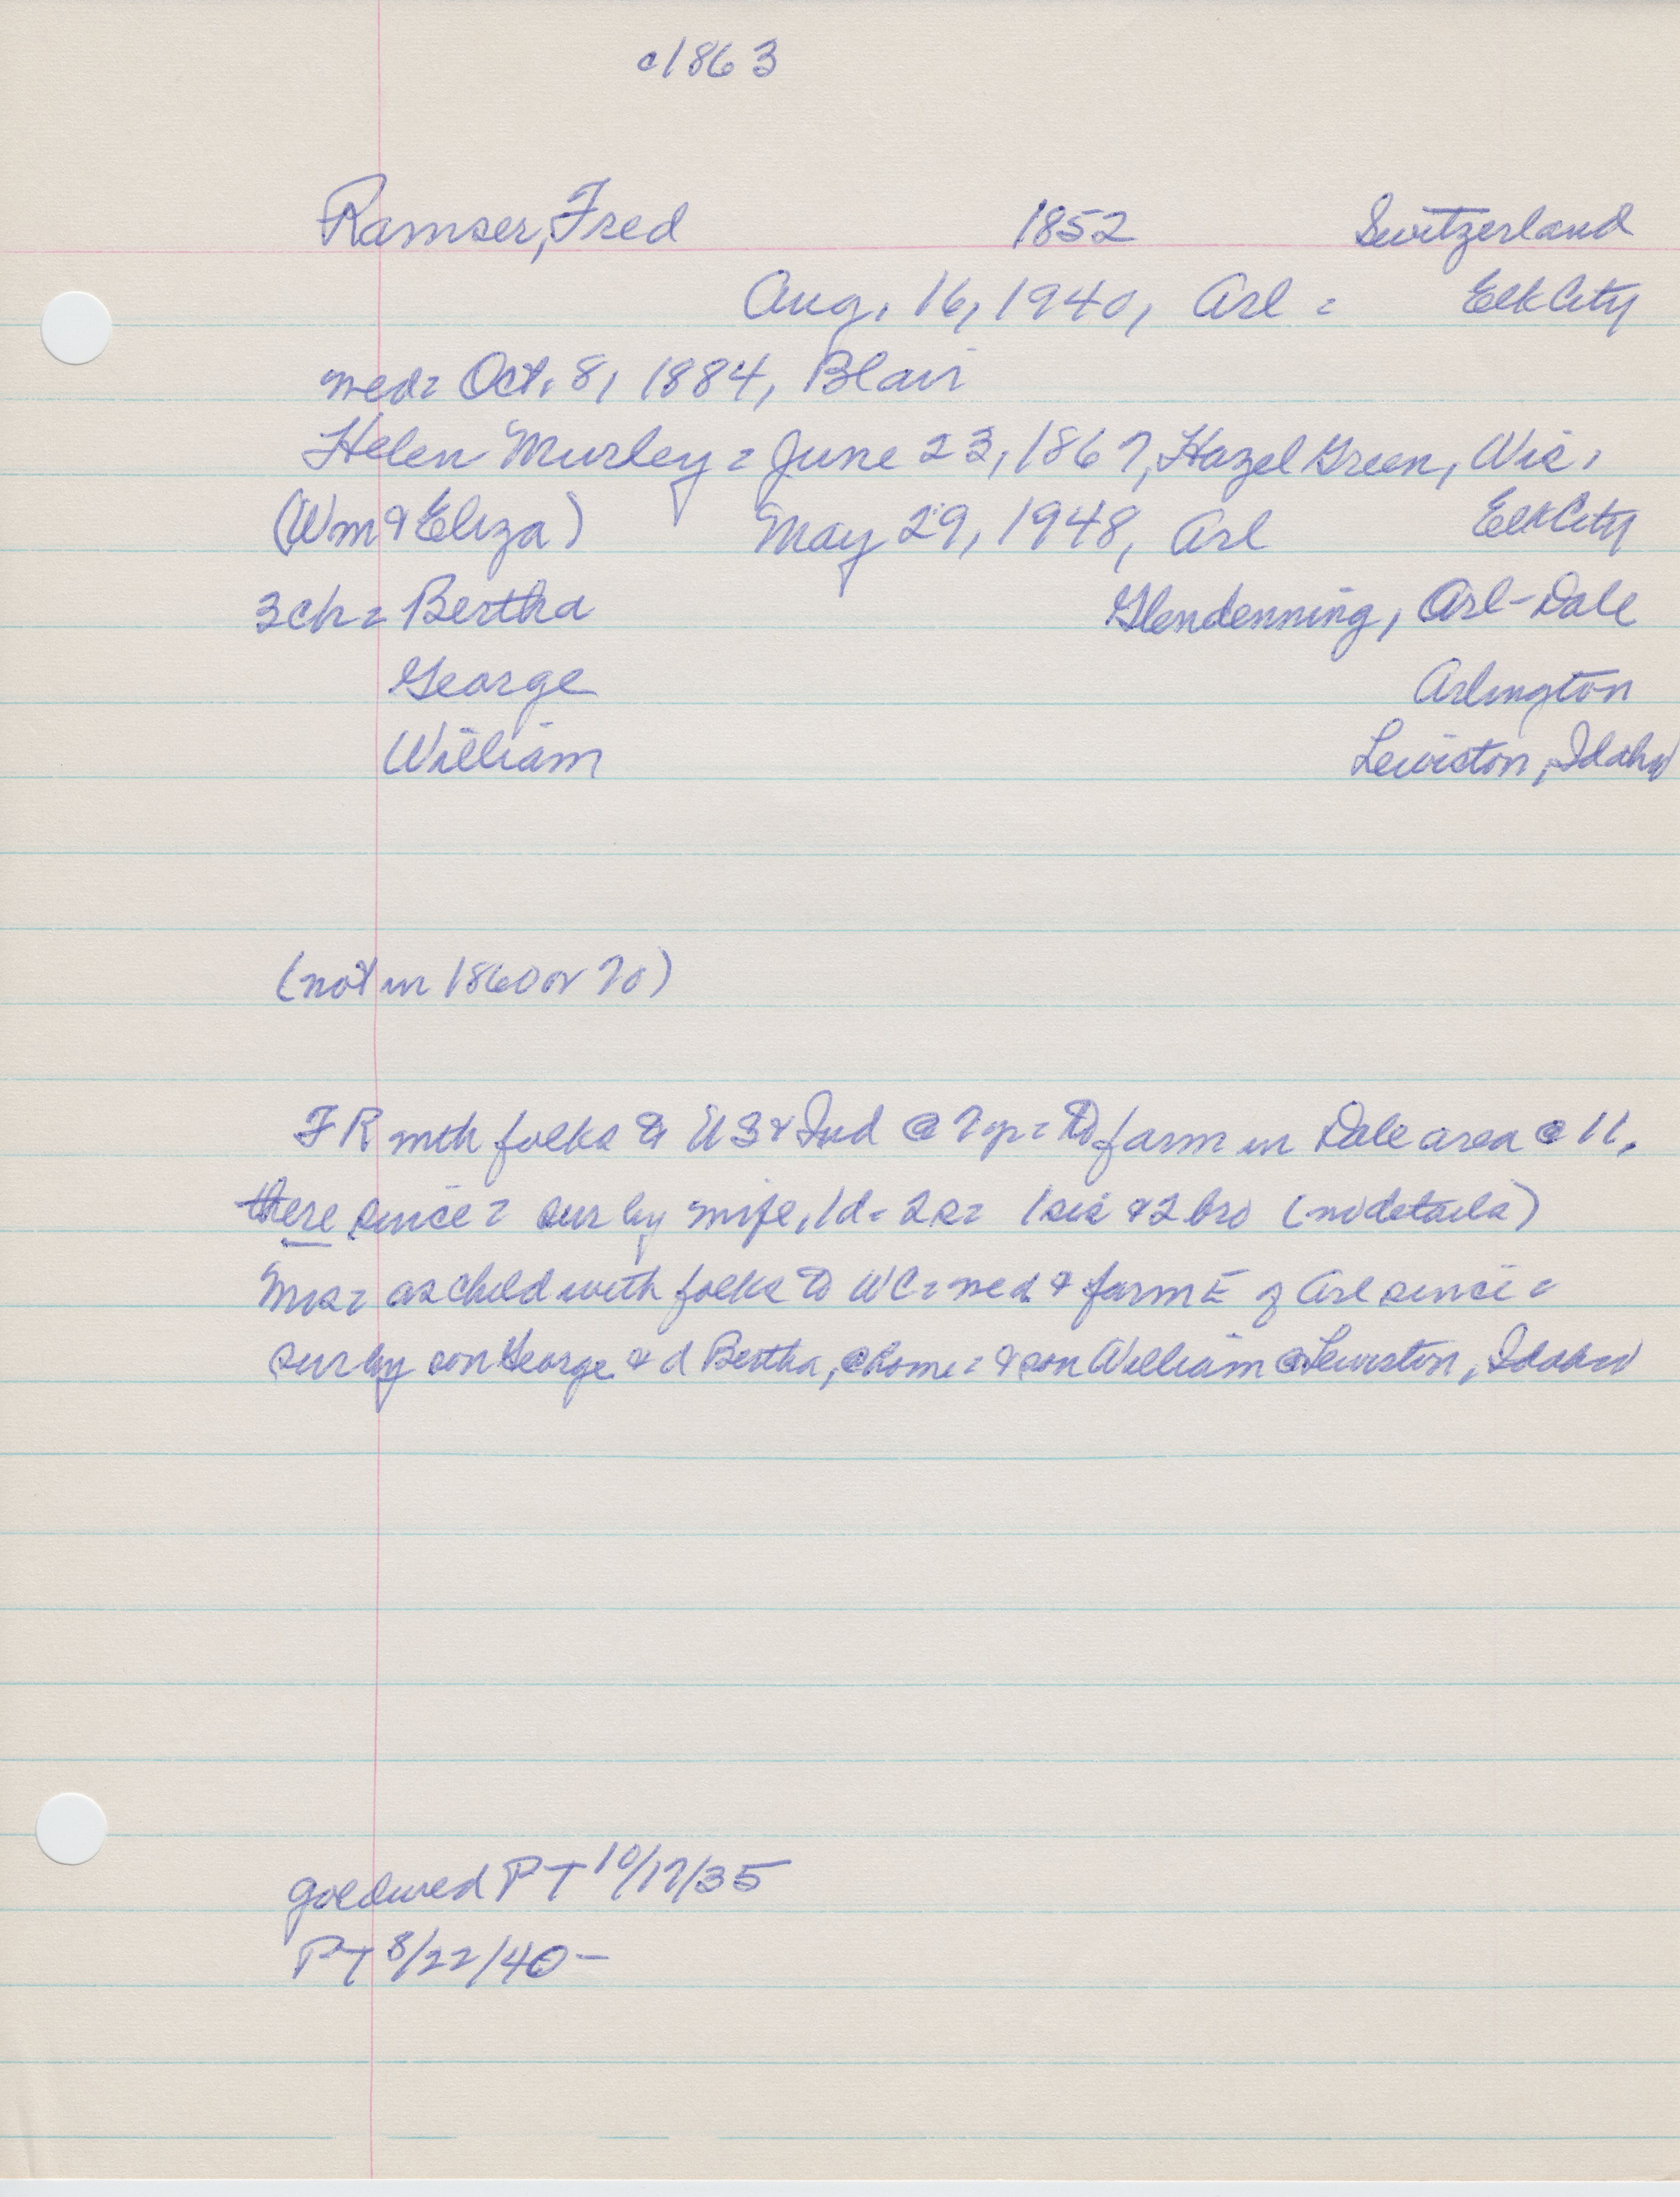 c1863
Ramser, Fred 1852 Switzerland
Aug. 16, 1940, Arl = Elk City
med= Oct. 8, 1884, Blair
Helen Murley = June 23, 1867, Hazel Green, Wis.
(Wm & Eliza) May 29, 1948, Arl Elk City
3 ch = Bertha Glendenning, Arl-Dale
George Arlington
William Lewiston, Idaho
(not in 1860 or 70)
FR with folks to US & Ind @ 7 yr = to farm in Dale area @ 11,
there since = sur by wife, 1 d = 2 s = 1 sis & 2 bro (no details)
Mrs = as child with folks to WC = med & farm E of Arl since =
sur by son George & d Bertha, @ home = & son William @ Lewiston, Idaho
goldwed PT 10/17/35
PT 8/22/40 -